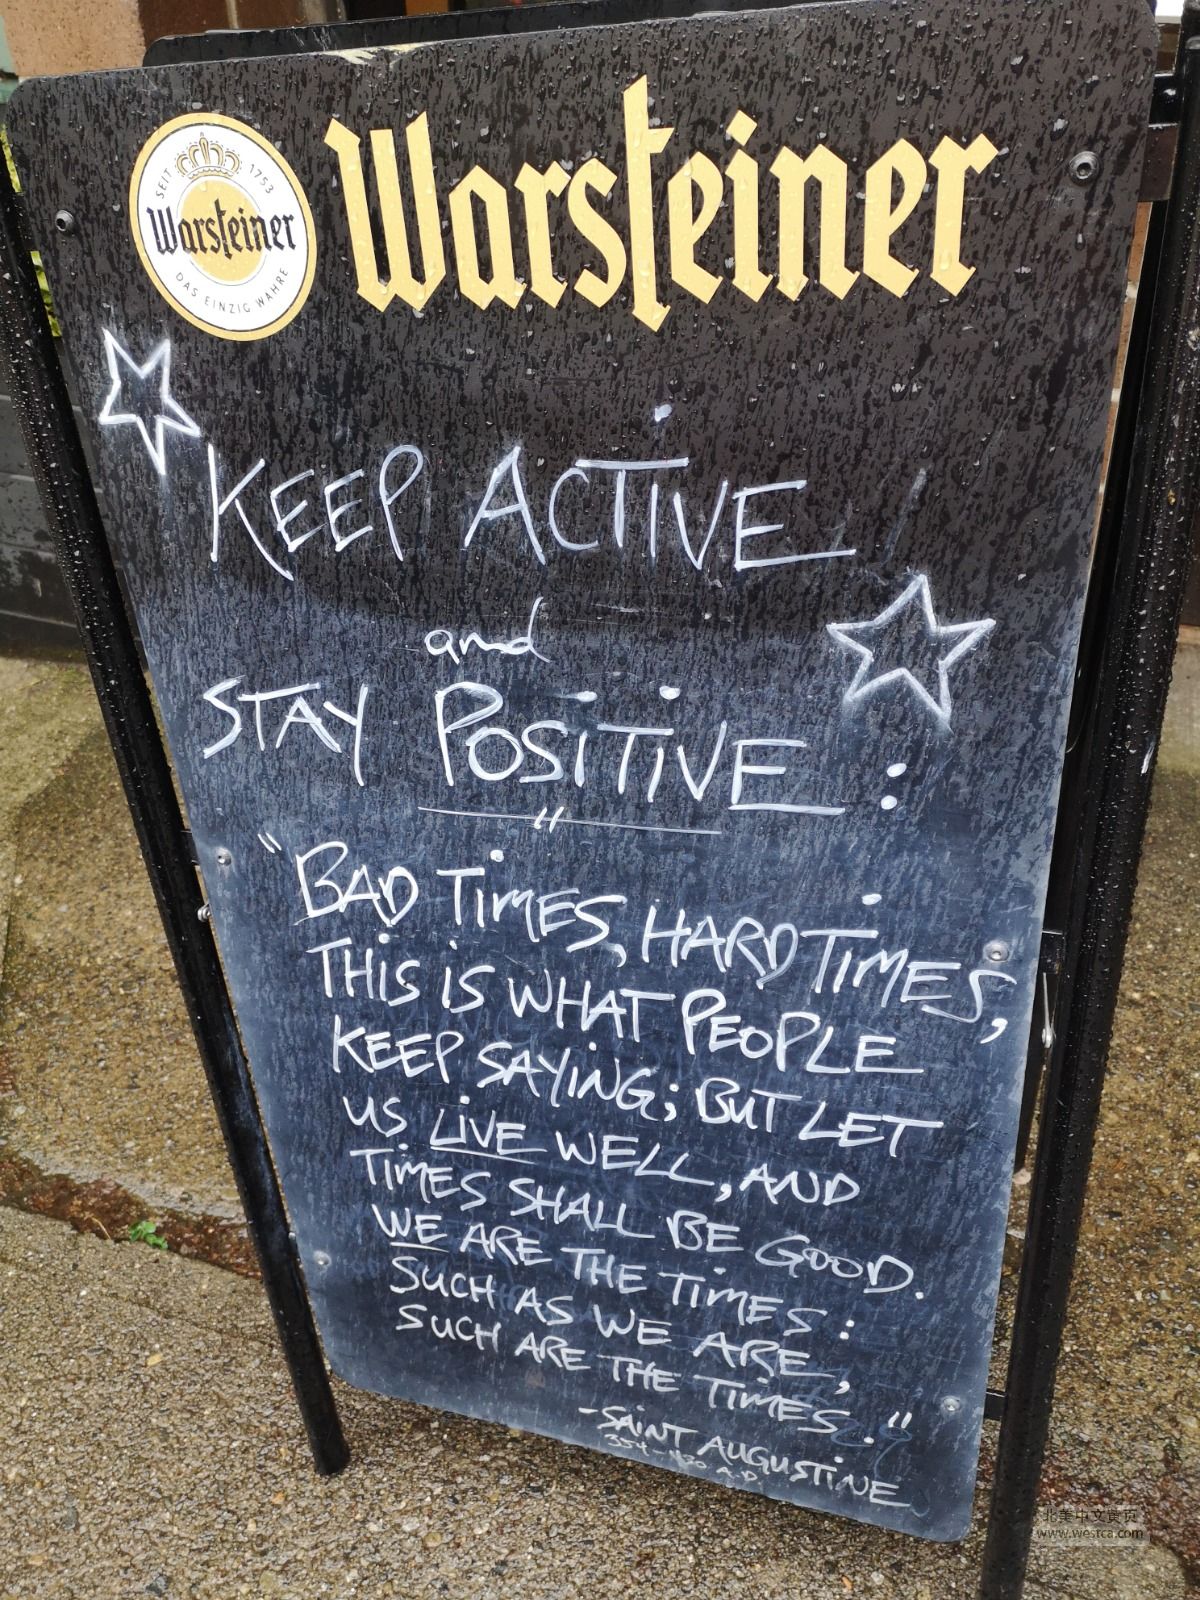 SEIT 1753
Warsteiner
DAS EINZIG WAHRE
Warsteiner
KEEP ACTIVE
and
STAY POSITIVE:
"BAD TIMES, HARD TIMES,
THIS IS WHAT PEOPLE
KEEP SAYING; BUT LET
US LIVE WELL, AND
TIMES SHALL BE GOOD.
WE ARE THE TIMES:
SUCH AS WE ARE,
SUCH ARE THE TIMES."
-SAINT AUGUSTINE
354-430 A.D.
北美中文黄页
www.westca.com